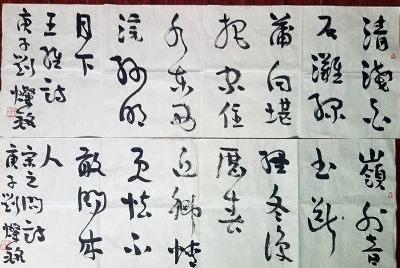 清淺白
石灘綠
蒲向堪
把家住
水東西
浣紗明
月下
王維詩
庚子劉燦
嶺外音
書斷
經冬復
歷春
近鄉情
更怯不
敢問來
人
宋之問詩
庚子劉燦